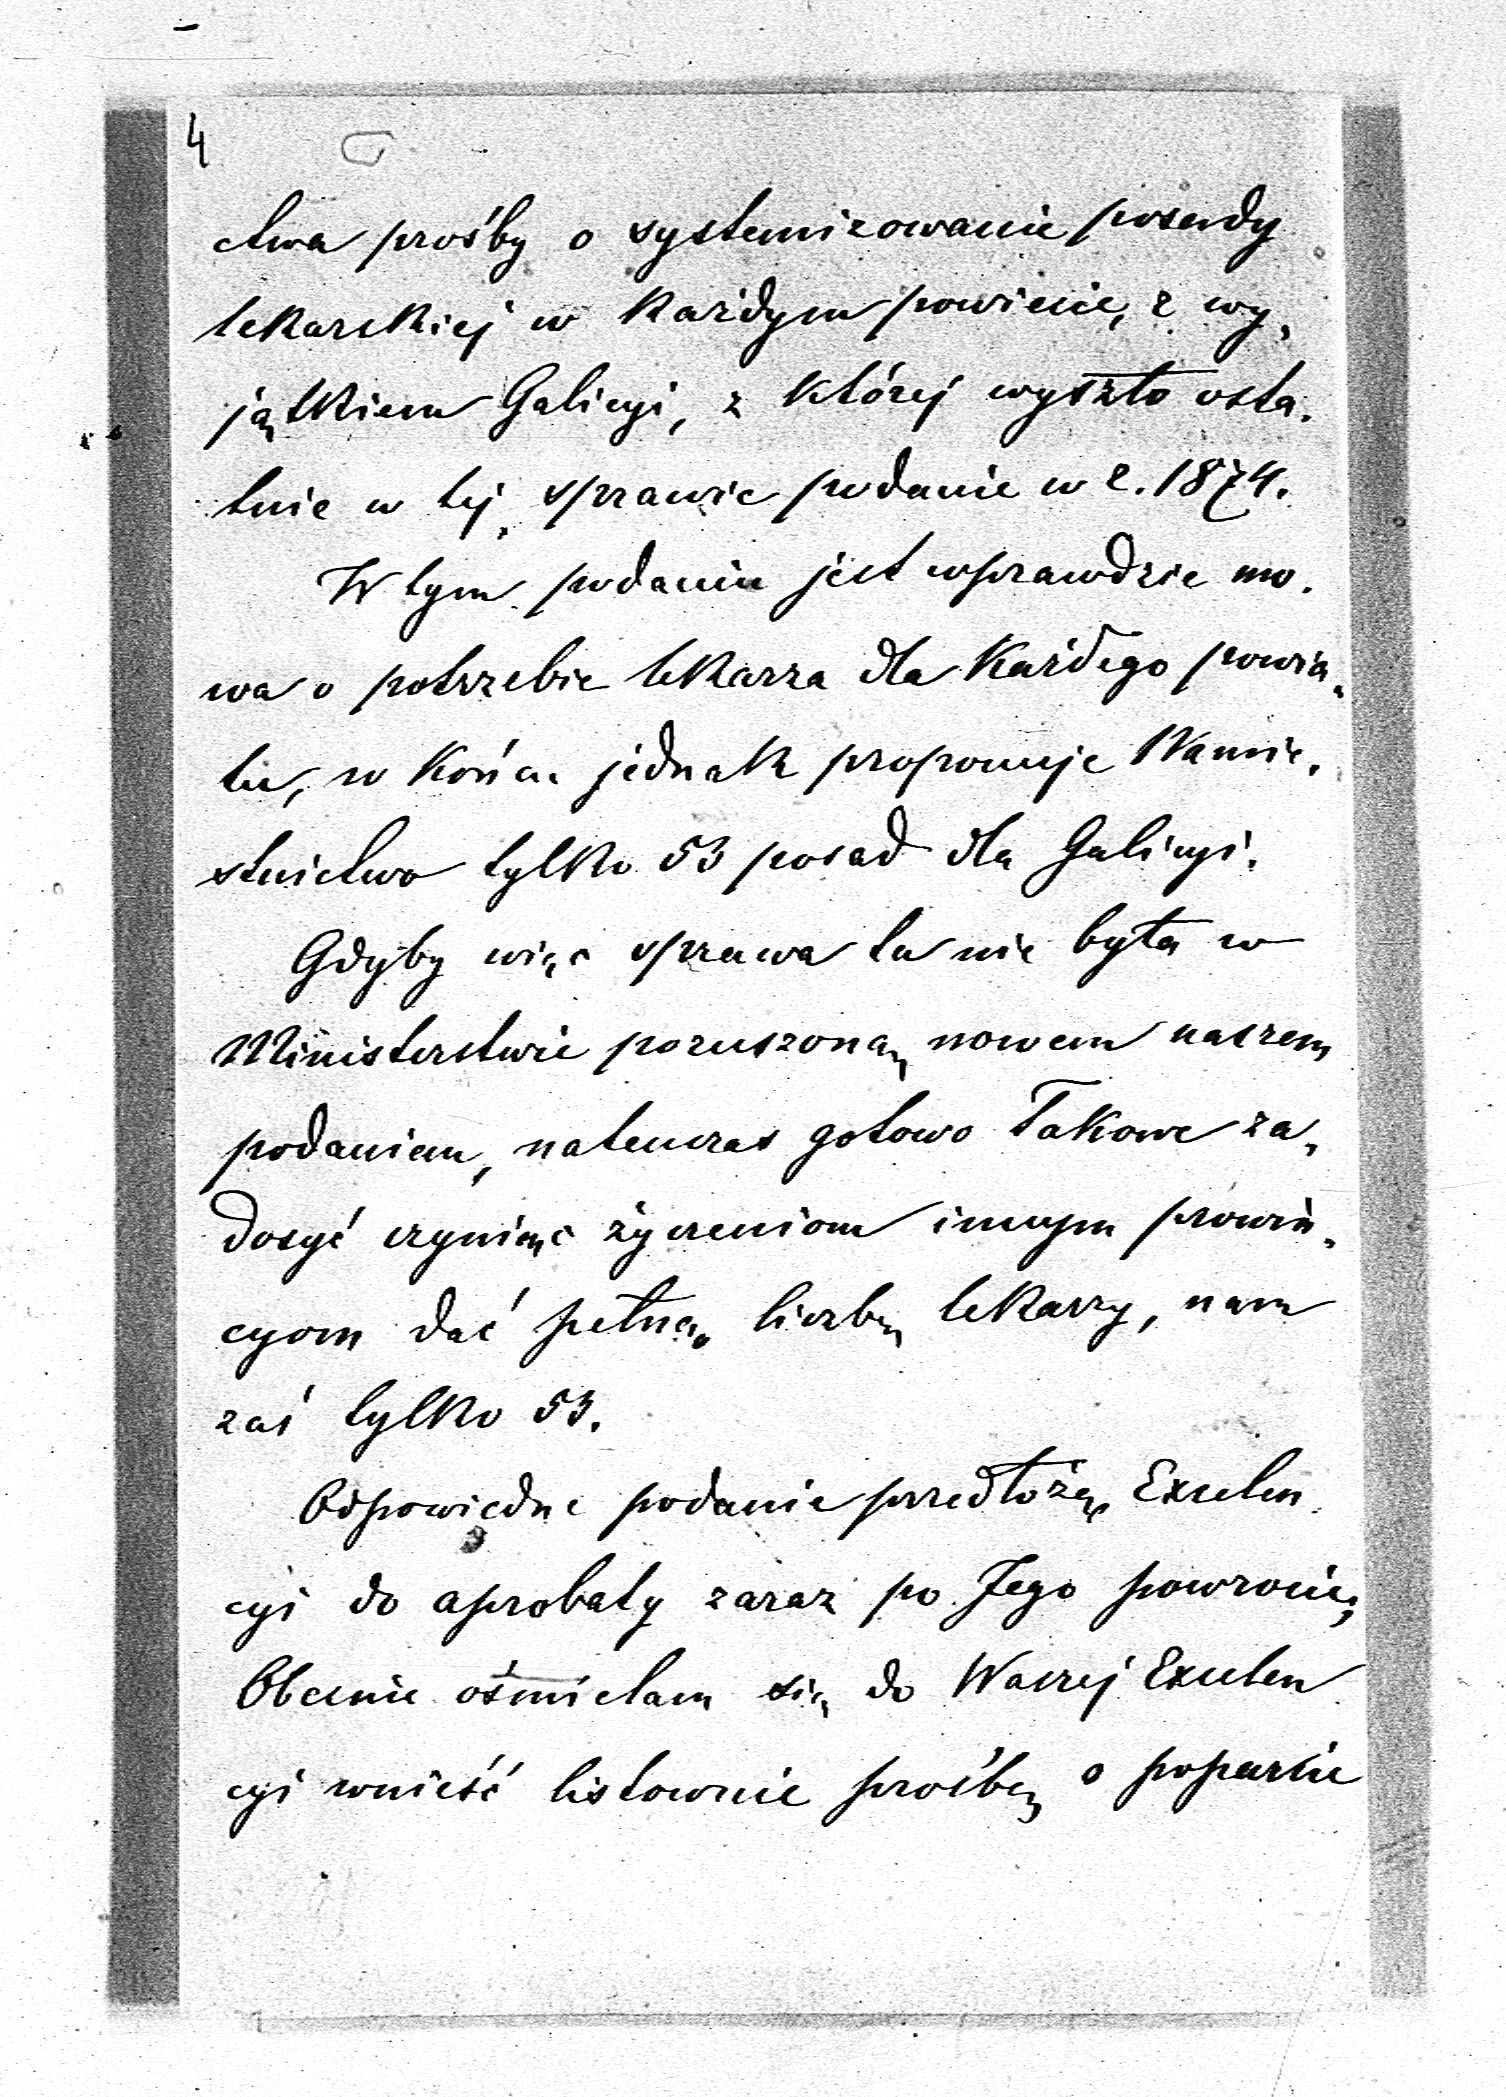 4
ctwa prośby o systemizowanie posady
lekarskiej w każdym powiecie, z wy„
jątkiem Galicyi, z której wyszło osta„
tnie w tej sprawie podanie w r. 1874.
W tym podaniu jest wprawdzie mo„
wa o potrzebie lekarza dla każdego powia„
tu, w końcu jednak proponuje Namie„
stnictwo tylko 53 posad dla Galicyi.
Gdyby więc sprawa ta nie była w
Ministerstwie poruszoną nowem naszem
podaniem, natenczas gotowo Takowe za„
dosyć czyniąc życzeniom innym prowin„
cyom dać pełną liczbę lekarzy, nam
zaś tylko 53.
Odpowiedne podanie przedłożę Excelen
cyi do aprobaty zaraz po Jego powrocie,
Obecnie ośmielam się do Waszej Excelen
cyi wnieść listownie prośbę o poparcie